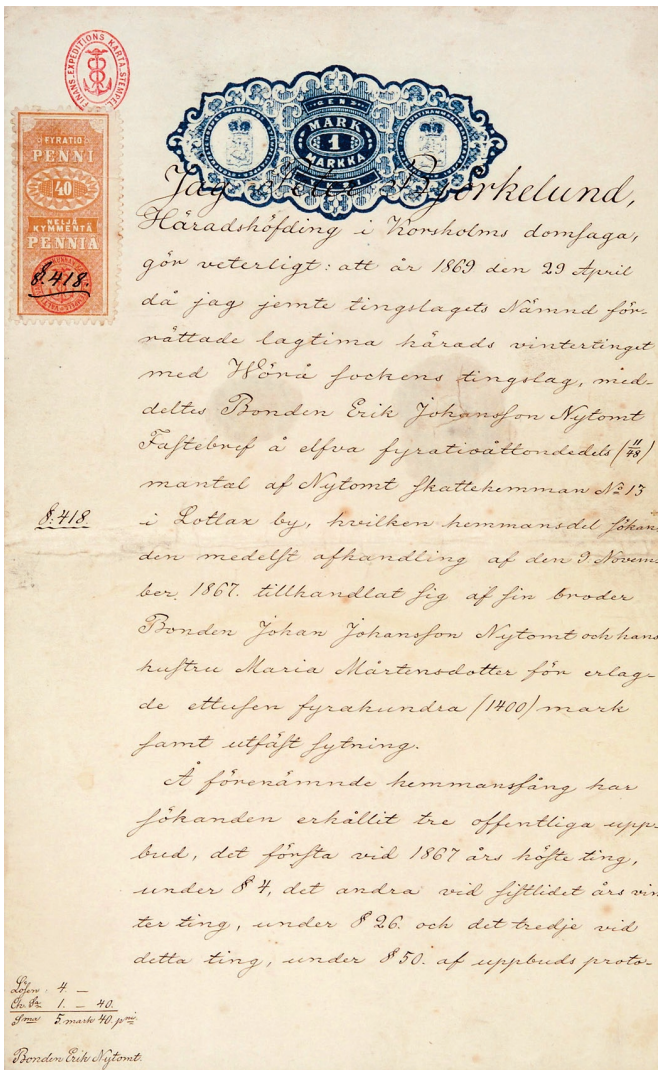 FINANS-EXPEDITIONS KARTA-STEMPEL
FYRATIO
PENNI
40
NELJÄ
KYMMENTÄ
PENNIÄ
§. 418.
EN
MARK
1
MARKKA
Jag Björkelund,
Häradshöfding i Korsholms domsaga,
gör veterligt: att år 1869 den 29 April
då jag jemte tingslagets Nämnd för-
rättade lagtima härads vintertinget
med Wörå sockens tingslag, med-
deltes Bonden Erik Johansson Nytomt
Fastebref å elfva fyratioåttondedels (11/48)
mantal af Nytomt skattehemman No 13
§. 418
i Lotlax by, hvilken hemmansdel sökan
den medelst afhandling af den 9 Novem
ber. 1867. tillhandlat sig af sin broder
Bonden Johan Johansson Nytomt och hans
hustru Maria Mårtensdotter för erlag-
de ettusen fyrahundra (1400) mark
samt utfäst sytning.
Å förenämnde hemmansfång har
sökanden erhållit tre offentliga upp-
bud, det första vid 1867 års höste ting,
under § 4, det andra vid sistlidet års vin
ter ting, under § 26. och det tredje vid
detta ting, under § 50. af uppbuds proto-
Lösen 4. —
Ch. Sr. 1. — 40.
Sma 5 mark 40 pni.
Bonden Erik Nytomt.